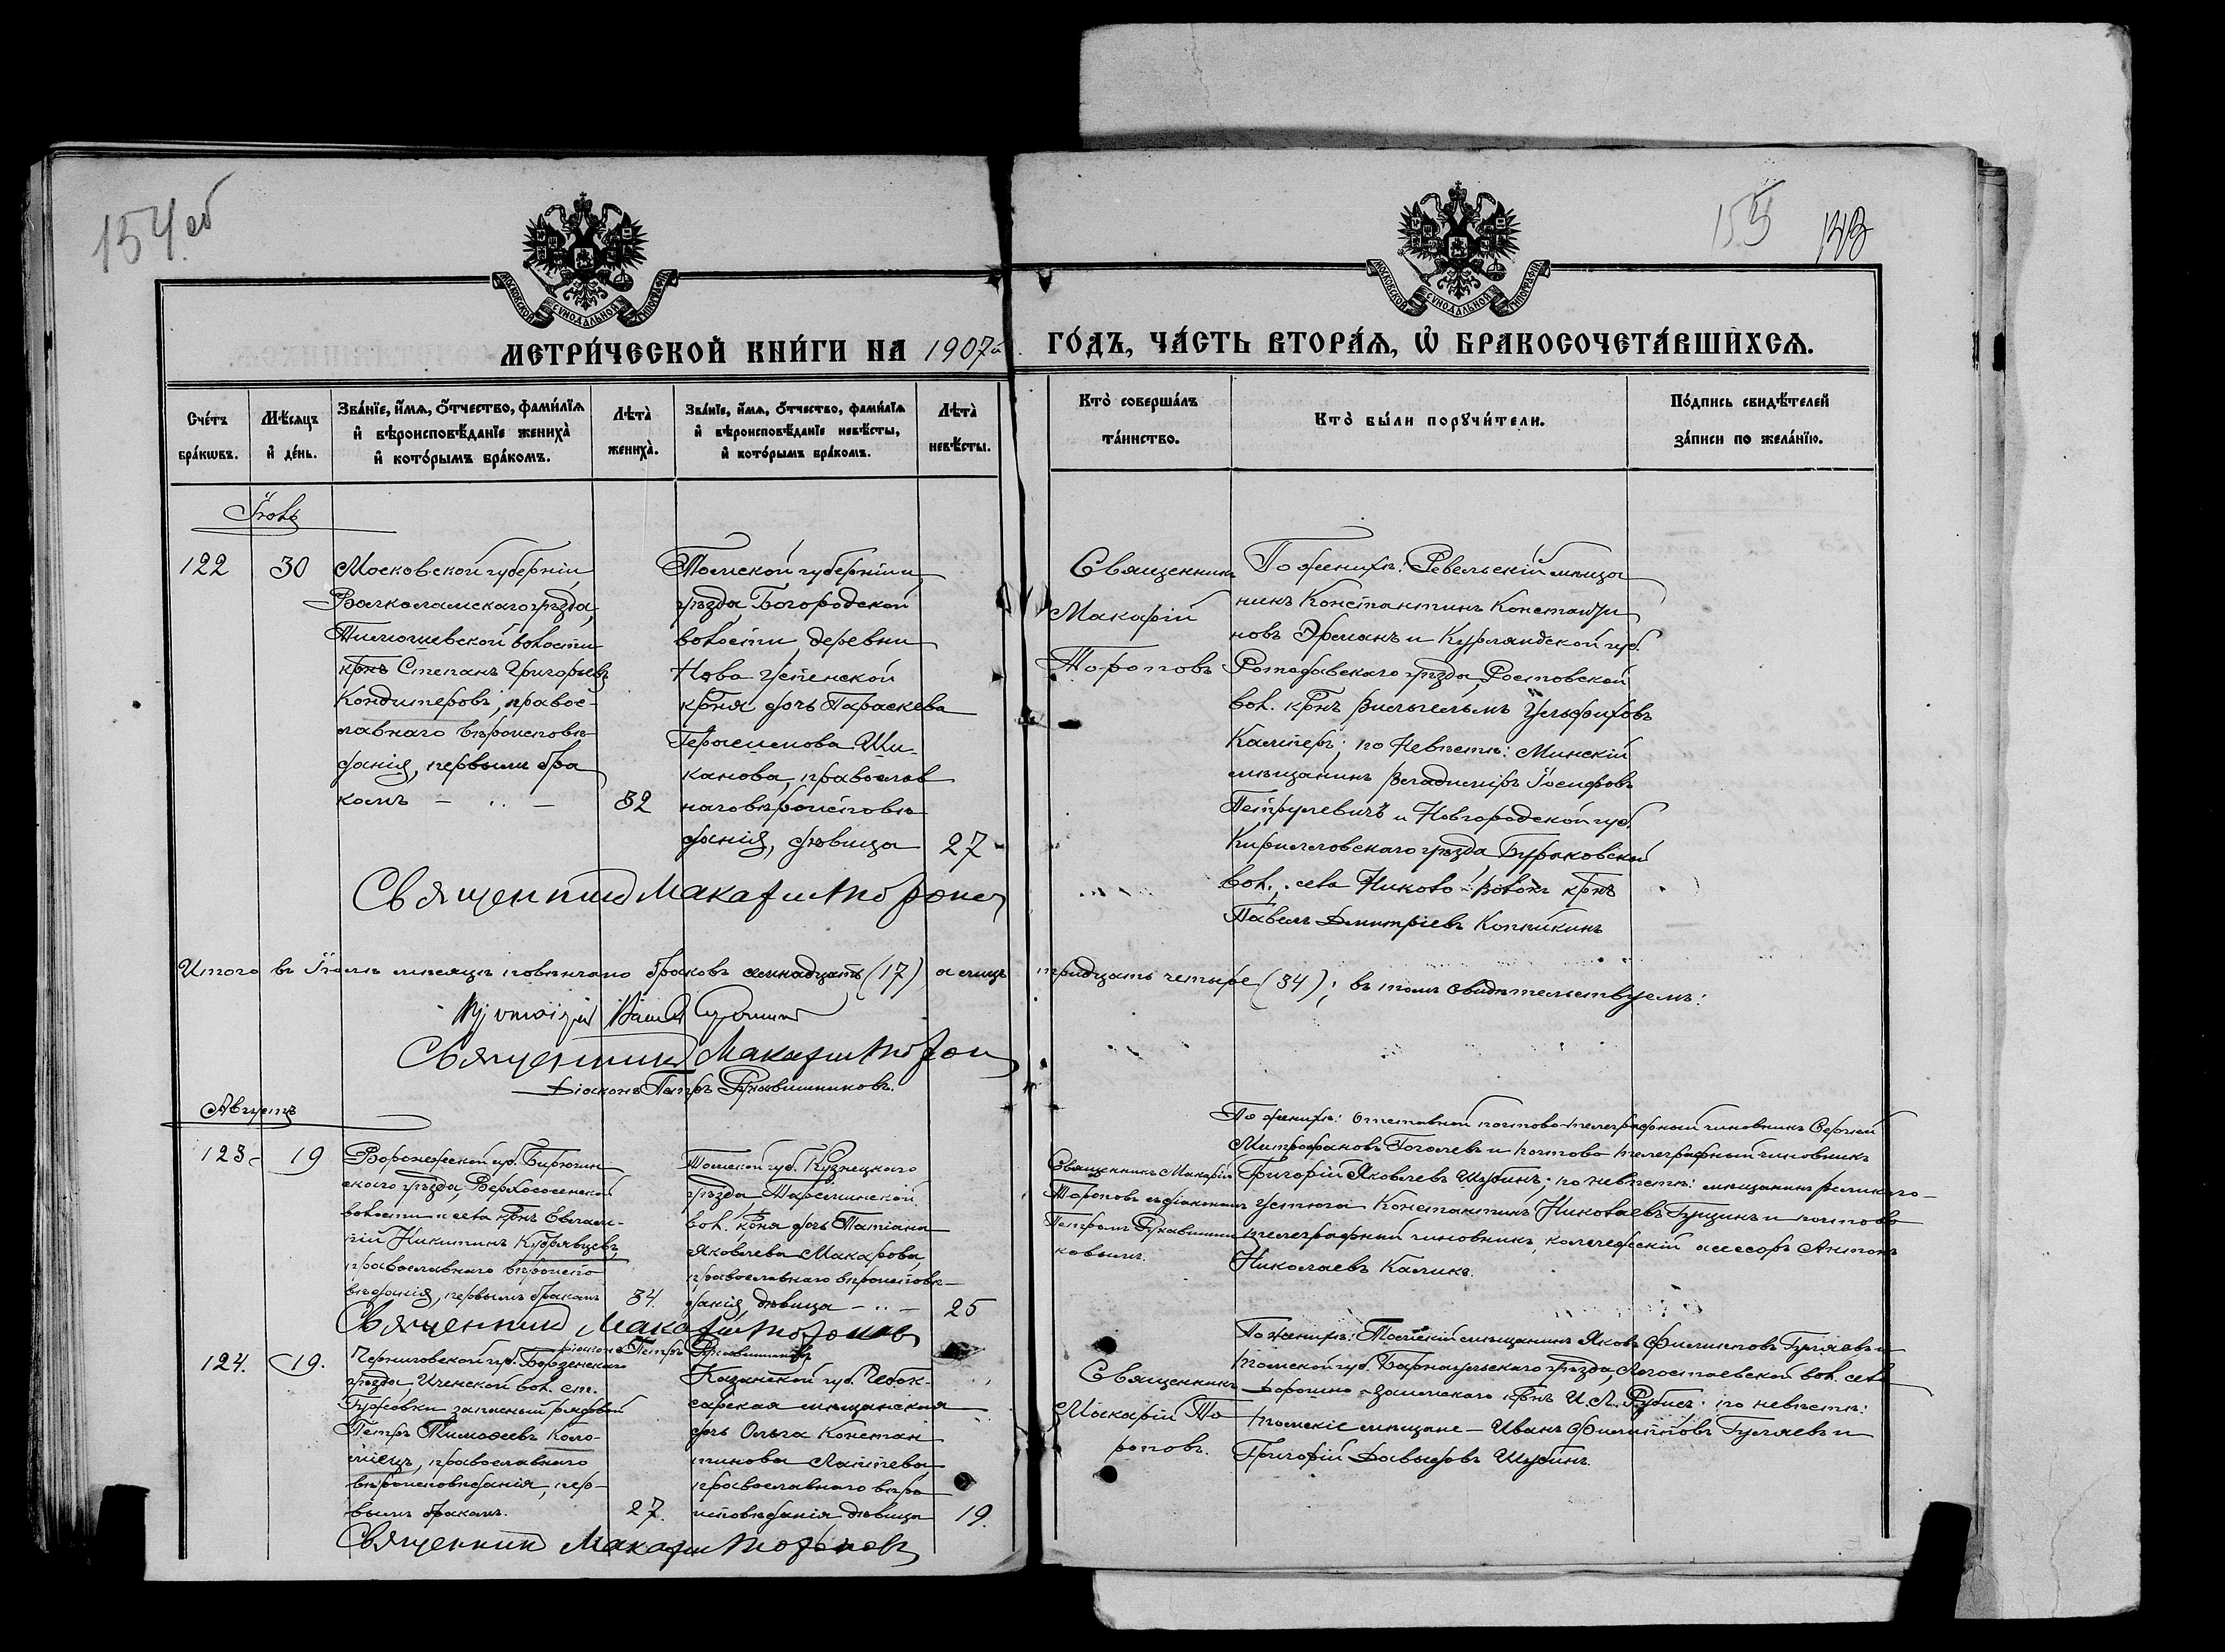 154 об
155
МОСКОВСКОЙ СѴНОДАЛЬНОЙ ТИПОГРАФІИ
МОСКОВСКОЙ СѴНОДАЛЬНОЙ ТИПОГРАФІИ
МЕТРИ́ЧЕСКОЙ КНИ́ГИ НА 1907й ГО́ДЪ, ЧА́СТЬ ВТОРА́Ѧ, Ѡ҆ БРАКОСОЧЕТА́ВШИХСѦ.
Сче́тъ бра́кѡвъ.
Мѣ́сѧцъ и҆ де́нь.
Зва́нїе, и҆́мѧ, ѻ҆́тчество, фами́лїѧ и҆ вѣроисповѣ́данїе жениха̀ и҆ кото́рымъ бра́комъ.
Лѣта̀ жениха̀.
Зва́нїе, и҆́мѧ, ѻ҆́тчество, фами́лїѧ и҆ вѣроисповѣ́данїе невѣ́сты, и҆ кото́рымъ бра́комъ.
Лѣта̀ невѣ́сты.
Кто̀ соверша́лъ та́инство.
Кто̀ бы́ли порꙋчи́тели.
По́дпись свидѣ́телей за́писи по жела́нїю.
Іюль
122
30
Московской губерніи
Волколамскаго уѣзда,
Тимошевской волости
крнъ Степанъ Григорьевъ
Кондитеровъ, правос-
лавнаго вѣроисповѣ-
данія, первымъ бра
комъ
32
Томской губерніи и
уѣзда Богородской
волости, деревни
Ново Успенской
крня дочь Параскева
Герасимова Ши-
канова, православ
наго вѣроисповѣ
данія, дѣвица
27
Священникъ
Макарій
Тороповъ
По женихѣ: Ревельскій мѣща
нинъ Константинъ Константи
новъ Эрманъ и Курляндской губ.
уѣзда, Ростовской
вол. крнъ Вильгельмъ Ульрихов
Каминеръ; по невѣстѣ: Минскій
мѣщанинъ Владимиръ Іосифовъ
Петрулевичъ и Новгородской губ.
Кирилловскаго уѣзда, Бураковской
вол., села Никово-Волокъ крнъ
Павелъ Димитріевъ Копыкинъ
Священникъ Макарій Тороповъ
Итого въ Іюлѣ мѣсяцѣ повѣнчано браковъ семнадцать (17) а лицъ тридцать четыре (34); въ томъ свидѣтельствуемъ:
Священникъ Макарій Тороповъ
Діаконъ Петръ Рукавишниковъ.
Августъ
123
19
Воронежской губ. Бирючин
скаго уѣзда, Верхососенской
волости и села крнъ Евлам-
пій Никитинъ Кудрявцевъ,
православнаго вѣроиспо
вѣданія, первымъ бракомъ
34.
Томской губ. Кузнецкаго
уѣзда Тарсминской
вол. крня дочь Татіана
Яковлева Макарова,
православнаго вѣроисповѣ-
данія, дѣвица
25
Священникъ Макарій
Тороповъ съ діакономъ
Петромъ Рукавишни
ковымъ.
По женихѣ: отставной почтово-телеграфный чиновникъ Сергей
Митрофановъ Гоголевъ и почтово телеграфный чиновникъ
Григорій Яковлевъ Шубинъ; по невѣстѣ: мѣщанинъ Великаго-
Устюга Константинъ Николаевъ Гущинъ и почтово
телеграфный чиновникъ, коллежскій асессоръ Антонъ
Николаевъ Каликъ.
Священникъ Макарій Тороповъ
Діаконъ Петръ Рукавишниковъ
124.
19.
Черниговской губ. Борзенскаго
уѣзда, Иченской вол. ст.
запасный рядовой
Петръ Тимофеевъ Коло-
міецъ, православнаго
вѣроисповѣданія, пер-
вымъ бракомъ.
27.
Казанской губ. Чебок-
сарская мѣщанская
дочь Ольга Констан
тинова Лаптева,
православнаго вѣро
исповѣданія, дѣвица
19.
Священникъ
Макарій То
роповъ.
По женихѣ: Томскій мѣщанинъ Яковъ Филипповъ Гуляевъ и
Томской губ. Барнаульскаго уѣзда, Легостаевской вол. села
Дорогино-Заимскаго крнъ И. Л. Рубис; по невѣстѣ:
томскіе мѣщане — Иванъ Филипповъ Гуляевъ и
Григорій Давыдовъ Шубинъ.
Священникъ Макарій Тороповъ